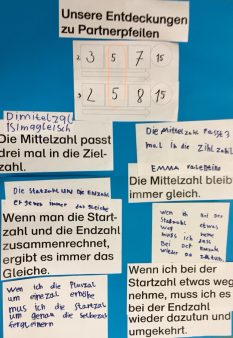 Unsere Entdeckungen
zu Partnerpfeilen
2. 3 5 7 15
3. 2 5 8 15
Dimitelzal
Die Mittelzahl passt
drei mal in die Ziel-
zahl.
Die Mittelzahl passt 3
mal in die Zihlzahl
EMMA Valentina
Die Mittelzahl bleib
immer gleich.
Die Startzahl und die Endzahl
ergeben immer das Gleiche
Wenn man die Start-
zahl und die Endzahl
zusammenrechnet,
ergibt es immer das
Gleiche.
wen ich bei der
Stadzahl etwas
weg
mus ich
das
Bei der
wieder da zuhtun
Wenn ich bei der
Startzahl etwas weg
nehme, muss ich es
bei der Endzahl
wieder dazutun und
umgekehrt.
Wen ich die Pluszal
um einezal erhöhe
mus ich die Startzal
um genau die selbezal